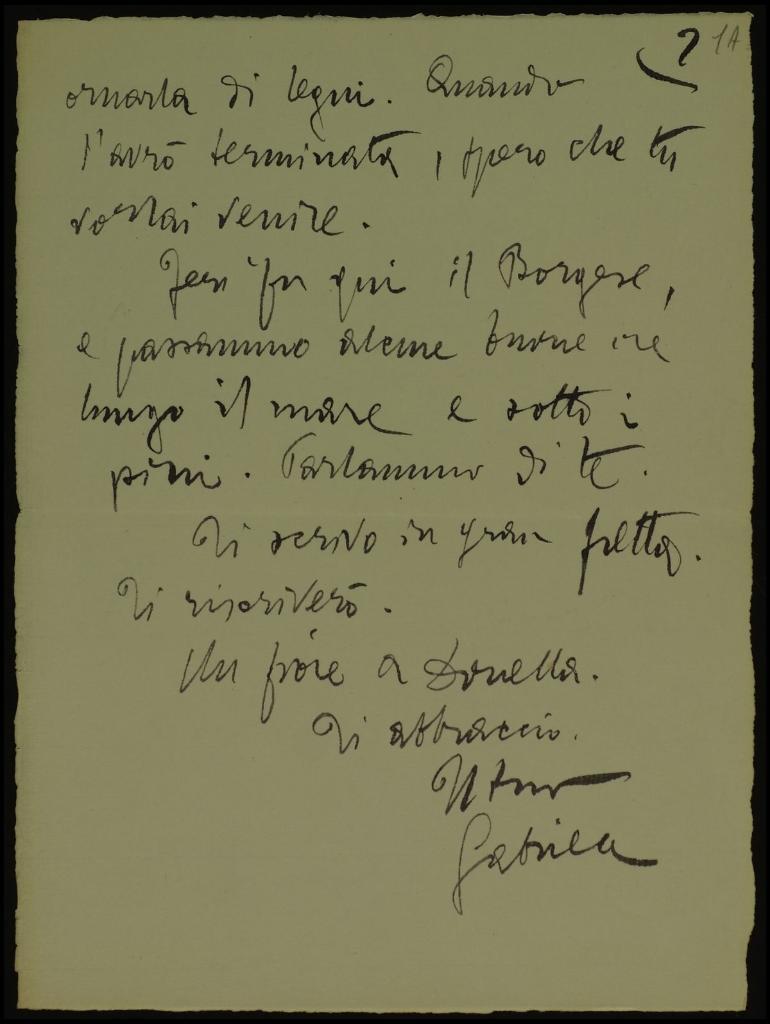 2 1A
ornarla di legni. Quando
l'avrò terminata, spero che tu
vorrai venire.
Jeri fu qui il Borgese,
e passammo alcune buone ore
lungo il mare e sotto i
pini. Parlammo di te.
Ti scrivo in gran fretta.
Ti riscriverò.
Un fiore a Donella.
Ti abbraccio.
Il tuo
Gabriele